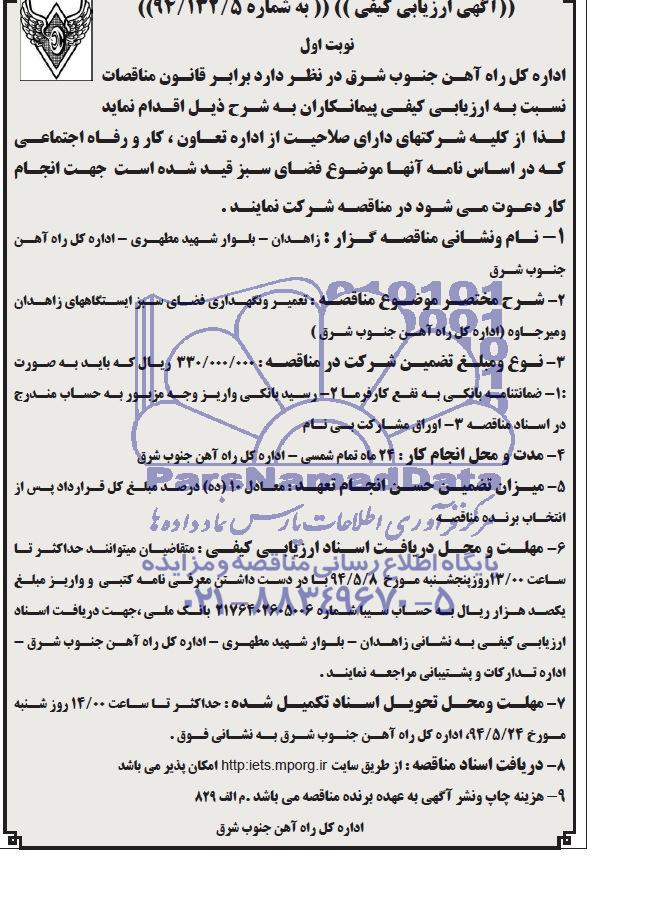 ((آگهی ارزیابی کیفی )) (( به شماره ۹۴/۱۳۲/۵))
نوبت اول
اداره کل راه آهن جنوب شرق در نظر دارد برابر قانون مناقصات
نسبت به ارزیابی کیفی پیمانکاران به شرح ذیل اقدام نماید
لذا از کلیه شرکتهای دارای صلاحیت از اداره تعاون ، کار و رفاه اجتماعی
که در اساس نامه آنها موضوع فضای سبز قید شده است جهت انجام
کار دعوت می شود در مناقصه شرکت نمایند .
۱- نام ونشانی مناقصه گزار : زاهدان - بلوار شهید مطهری - اداره کل راه آهن
جنوب شرق
۲- شرح مختصر موضوع مناقصه : تعمیر ونگهداری فضای سبز ایستگاههای زاهدان
ومیرجاوه (اداره کل راه آهن جنوب شرق )
۳- نوع ومبلغ تضمین شرکت در مناقصه : ۳۳۰/۰۰۰/۰۰۰ ریال که باید به صورت
:۱- ضمانتنامه بانکی به نفع کارفرما ۲- رسید بانکی واریز وجه مزبور به حساب مندرج
در اسناد مناقصه ۳- اوراق مشارکت بی نام
۴- مدت و محل انجام کار : ۲۴ ماه تمام شمسی - اداره کل راه آهن جنوب شرق
ParsNamadData
۵- میزان تضمین حسن انجام تعهد : معادل ۱۰ (ده) درصد مبلغ کل قرارداد پس از
انتخاب برنده مناقصه
مرکز فرآوری اطلاعات پارس نماد داده ها
۶- مهلت و محل دریافت اسناد ارزیابی کیفی : متقاضیان میتوانند حداکثر تا
پایگاه اطلاع رسانی مناقصه و مزایده
ساعت ۱۳/۰۰روزپنجشنبه مورخ ۹۴/۵/۸ با در دست داشتن معرفی نامه کتبی و واریز مبلغ
۰۲۱-۸۸۳۴۹۶۷۰-۵
یکصد هزار ریال به حساب سیبا شماره ۲۱۷۶۴۰۲۶۰۵۰۰۶ بانک ملی ،جهت دریافت اسناد
ارزیابی کیفی به نشانی زاهدان - بلوار شهید مطهری - اداره کل راه آهن جنوب شرق -
اداره تدارکات و پشتیبانی مراجعه نمایند .
۷- مهلت ومحل تحویل اسناد تکمیل شده : حداکثر تا ساعت ۱۴/۰۰ روز شنبه
مورخ ۹۴/۵/۲۴، اداره کل راه آهن جنوب شرق به نشانی فوق .
۸- دریافت اسناد مناقصه : از طریق سایت http:iets.mporg.ir امکان پذیر می باشد
۹- هزینه چاپ ونشر آگهی به عهده برنده مناقصه می باشد .م الف ۸۲۹
اداره کل راه آهن جنوب شرق